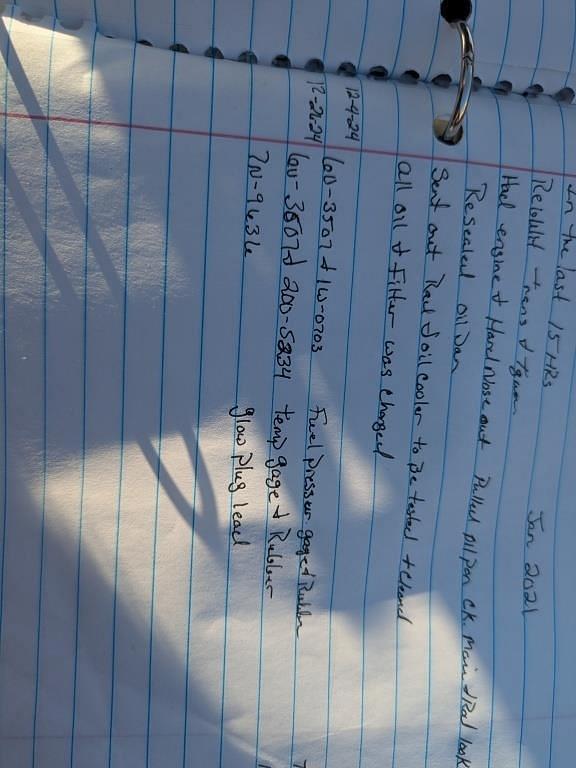 In the last 15 HRS
Rebuilt trans & Jan 2021
Had engine & Hard Nose out Pulled oil pan ck main & Rod look
Resealed oil pan
Sent out Rad & oil cooler to be tested & cleaned
all oil & Filter was changed
12-4-24
12-21-24 600-3507 & 100-0703 Fuel pressure gage & Rubber
600-3507 & 200-5234 temp gage & Rubber
700-9636 glow plug lead